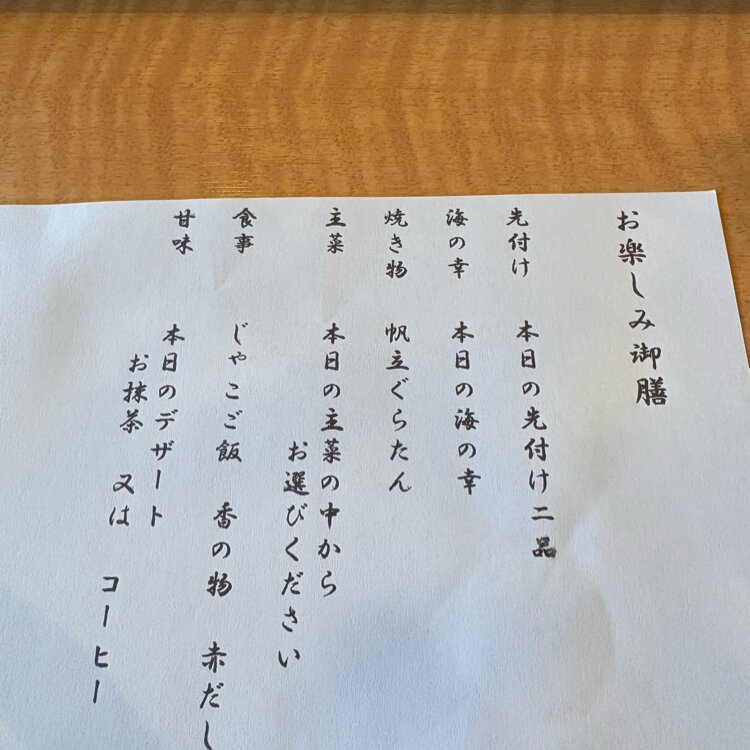 お楽しみ御膳
先付け 本日の先付け二品
海の幸 本日の海の幸
焼き物 帆立ぐらたん
主菜 本日の主菜の中から
お選びください
食事 じゃこご飯 香の物 赤だし
甘味 本日のデザート
お抹茶 又は コーヒー